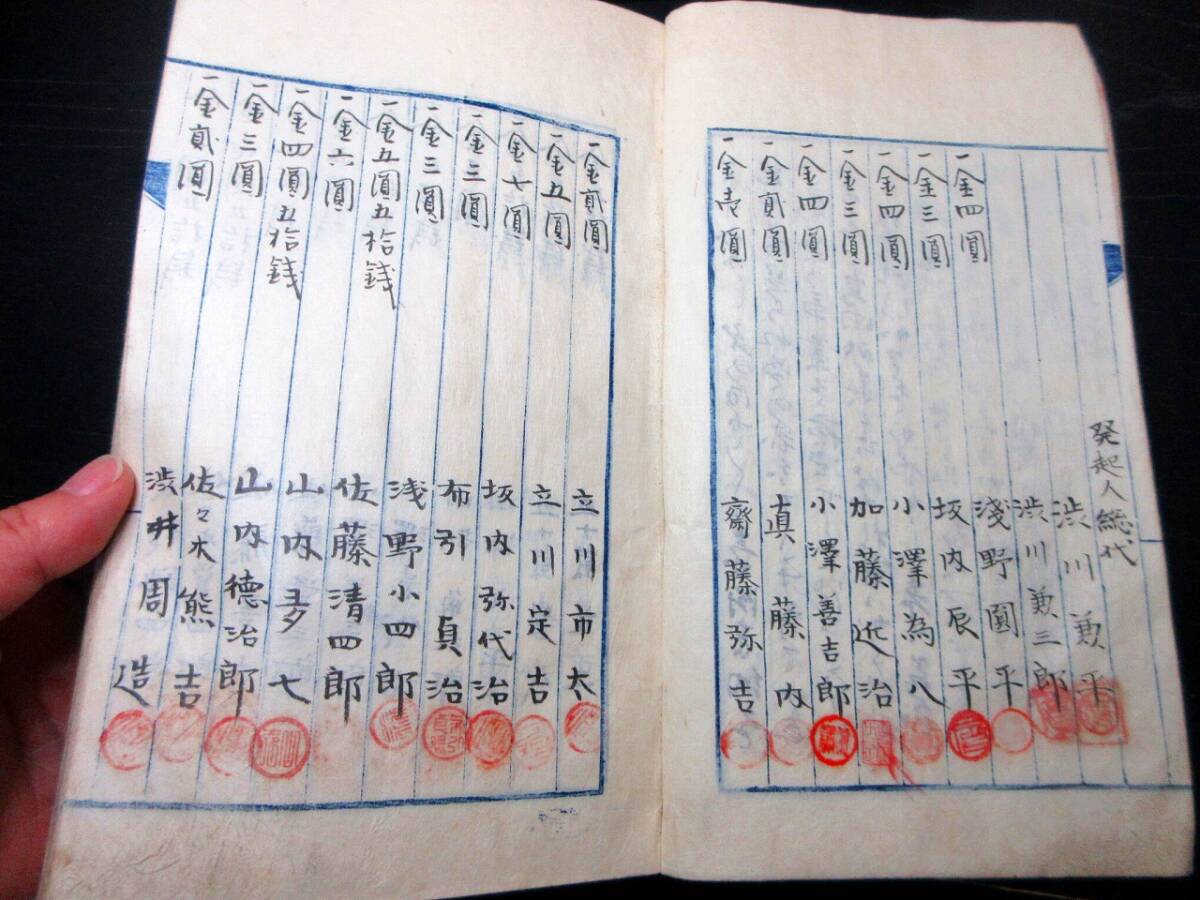 発起人総代
渋川兼平
渋川兼三郎
一金四圓 淺野園平
一金三圓 坂内辰平
一金四圓 小澤為八
一金三圓 加藤近治
一金四圓 小澤善吉郎
一金貳圓 眞藤内
一金壱圓 齋藤弥吉
一金貳圓 立川市太
一金五圓 立川定吉
一金七圓 坂内弥代治
一金三圓 布引貞治
一金三圓 浅野小四郎
一金五圓五拾銭 佐藤清四郎
一金六圓 山内多七
一金四圓五拾銭 山内德治郎
一金三圓 佐々木熊吉
一金貳圓 渋井周造